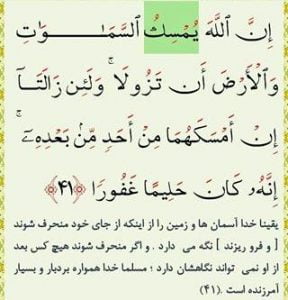 إِنَّ ٱللَّهَ يُمْسِكُ ٱلسَّمَـٰوَٰتِ
وَٱلْأَرْضَ أَن تَزُولَا ۚ وَلَئِن زَالَتَآ
إِنْ أَمْسَكَهُمَا مِنْ أَحَدٍ مِّنۢ بَعْدِهِۦٓ ۚ
إِنَّهُۥ كَانَ حَلِيمًا غَفُورًا ﴿٤١﴾
یقینا خدا آسمان ها و زمین را از اینکه از جای خود منحرف شوند
[ و فرو ریزند ] نگه می دارد . و اگر منحرف شوند هیچ کس بعد
از او نمی تواند نگاهشان دارد ؛ مسلما خدا همواره بردبار و بسیار
آمرزنده است .(۴۱)